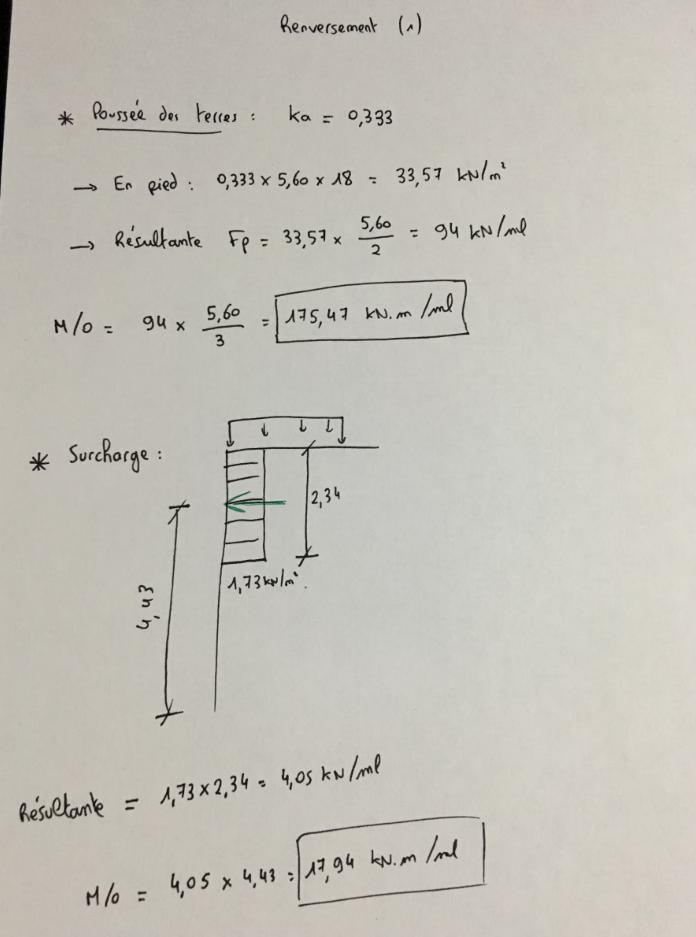 Renversement (1)
* Poussée des terres : ka = 0,333
→ En pied : 0,333 x 5,60 x 18 = 33,57 kN/m²
→ Résultante Fp = 33,57 x 5,60/2 = 94 kN/ml
M/o = 94 x 5,60/3 = 175,47 kN.m /ml
* Surcharge :
2,34
1,73 kN/m².
4,43
Résultante = 1,73 x 2,34 = 4,05 kN/ml
M/o = 4,05 x 4,43 = 17,94 kN.m /ml